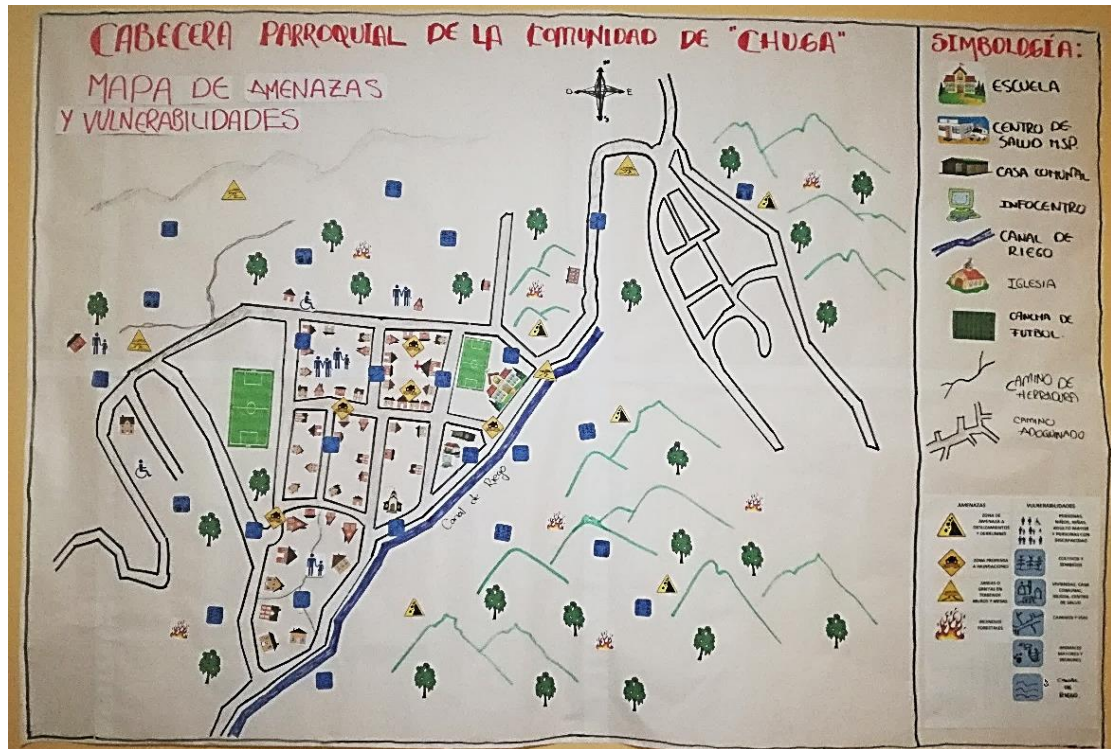 CABECERA PARROQUIAL DE LA COMUNIDAD DE "CHUGA"
MAPA DE AMENAZAS
Y VULNERABILIDADES
N
O
E
S
Canal de Riego
SIMBOLOGÍA:
ESCUELA
CENTRO DE
SALUD MSP.
CASA COMUNAL
INFOCENTRO
CANAL DE
RIEGO
IGLESIA
CANCHA DE
FUTBOL
CAMINO DE
HERRADURA
CAMINO
ADOQUINADO
AMENAZAS
ZONA DE
AMENAZA A
DESLIZAMIENTOS
Y DERRUMBES
ZONA PROPENSA
A INUNDACIONES
INCENDIOS
FORESTALES
VULNERABILIDADES
PERSONAS,
NIÑOS, NIÑAS,
ADULTO MAYOR
Y PERSONAS CON
DISCAPACIDAD
CULTIVOS Y
VIVIENDAS, CASA
COMUNAL,
IGLESIA, CENTRO
DE SALUD
CAMINOS Y VIAS
ANIMALES
MAYORES Y
MENORES
CANAL
DE
RIEGO